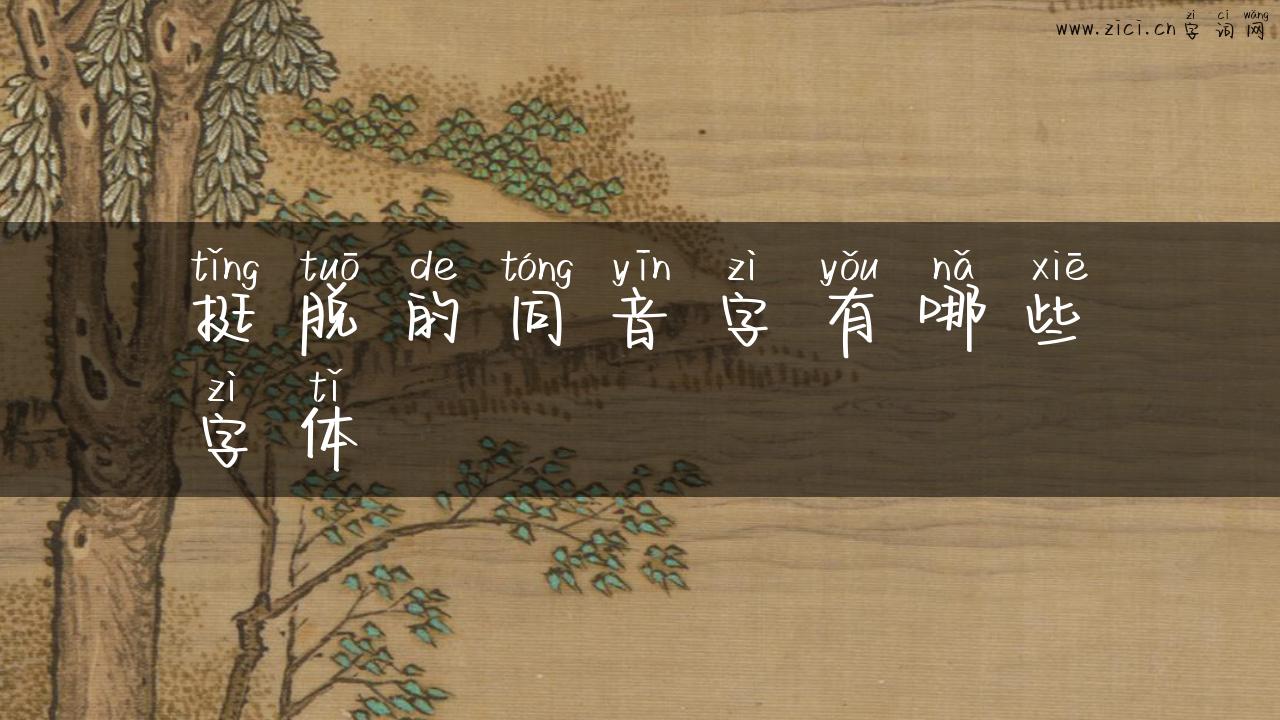 zì cí wǎng
www.zici.cn 字词网
tǐng tuō de tóng yīn zì yǒu nǎ xiē
挺脱的同音字有哪些
zì tǐ
字体